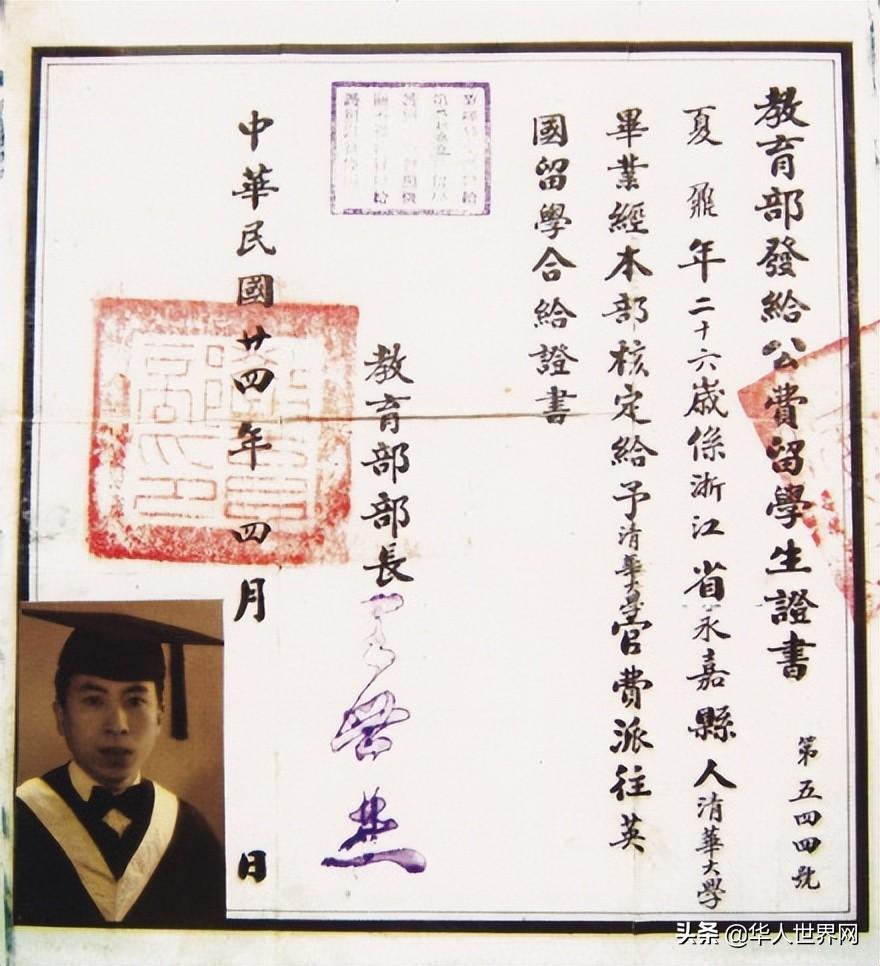 教育部發給公費留學生證書
第五四四號
夏鼐年二十六歲係浙江省永嘉縣人清華大學
畢業經本部核定給予清華大學官費派往英
國留學合給證書
教育部部長
中華民國廿四年四月 日
头条 @华人世界网